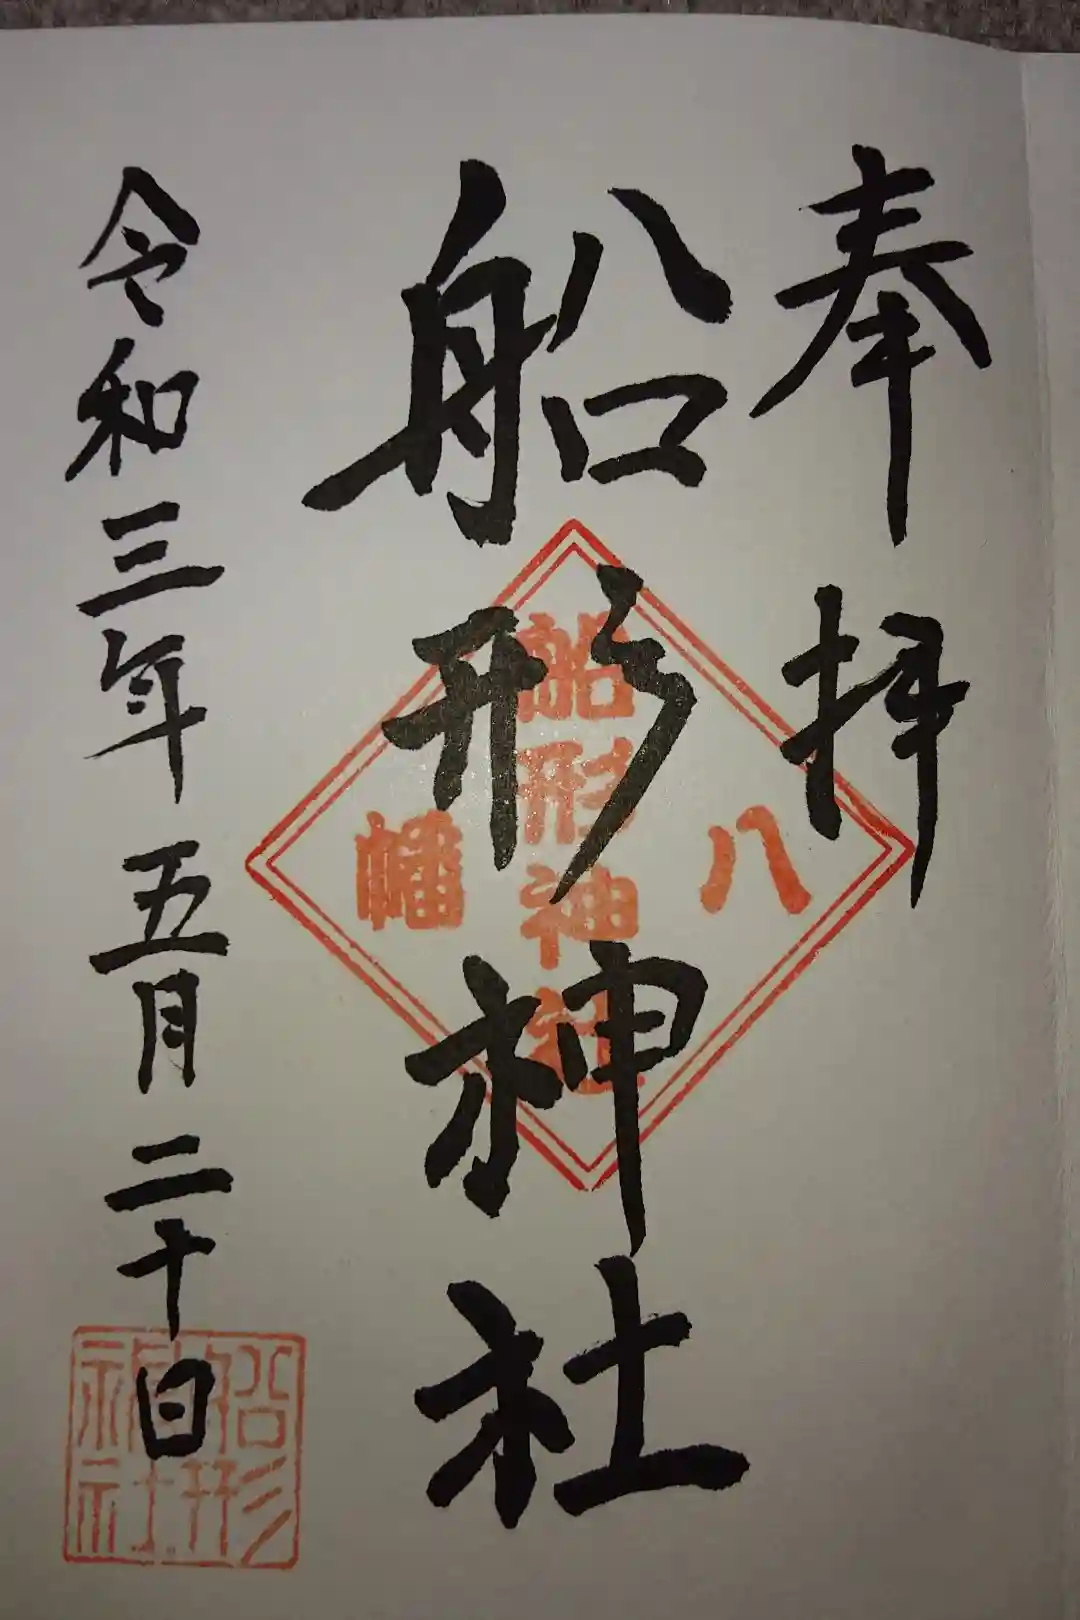 奉拝
八
船形神社
船形神社
幡
令和三年五月二十日
船形
神社